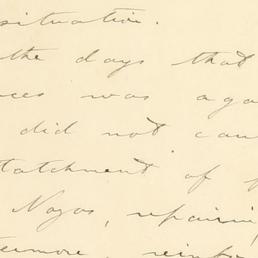 situation.
the days that
was aga
did not cau
tatchment of
Nagas, repairin
termore, reinfo